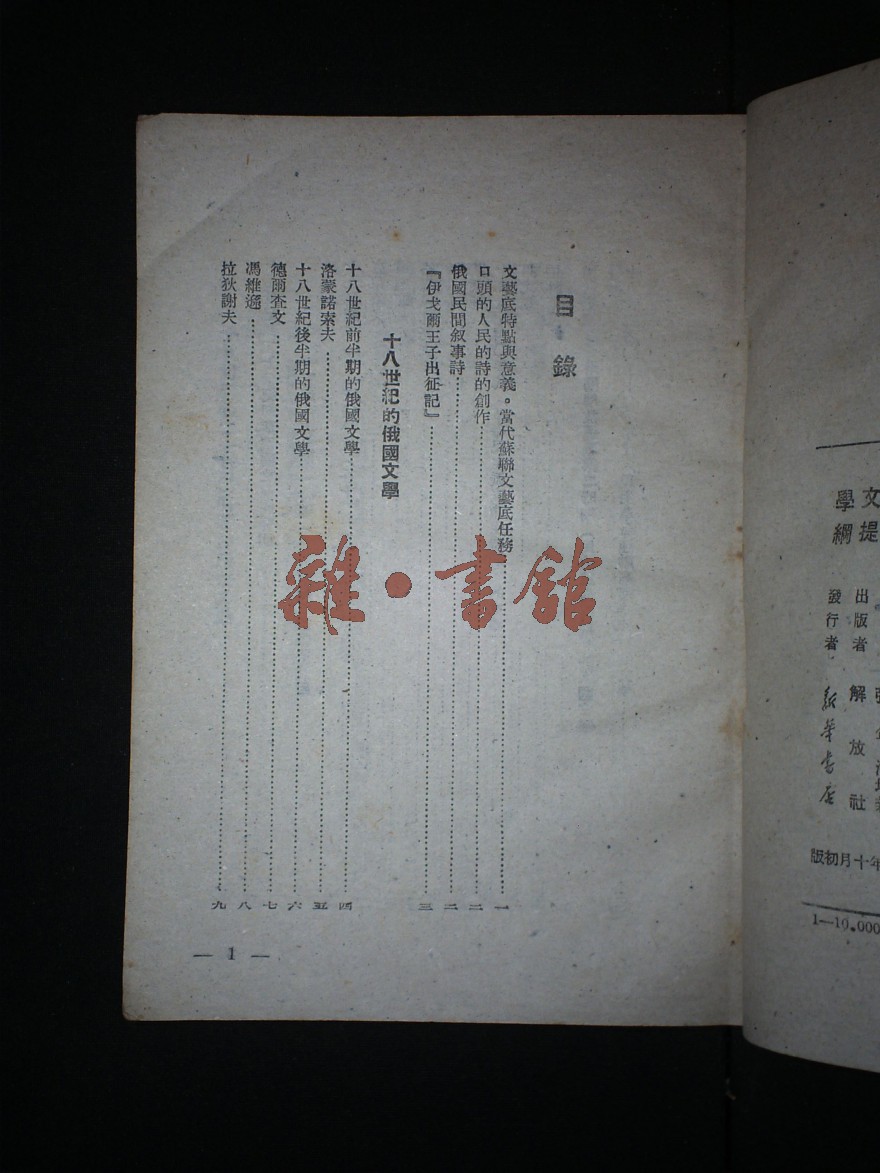 目錄
文藝底特點與意義。當代蘇聯文藝底任務……一
口頭的人民的詩的創作……二
俄國民間叙事詩……二
『伊戈爾王子出征記』……三
十八世紀的俄國文學
十八世紀前半期的俄國文學……四
洛蒙諾索夫……五
十八世紀後半期的俄國文學……六
德爾査文……七
馮維遜……八
拉狄謝夫……九
— 1 —
雜·書館
文
提
學
綱
出版者 解放社
發行者 新華書店
年十月初版
1—10.000